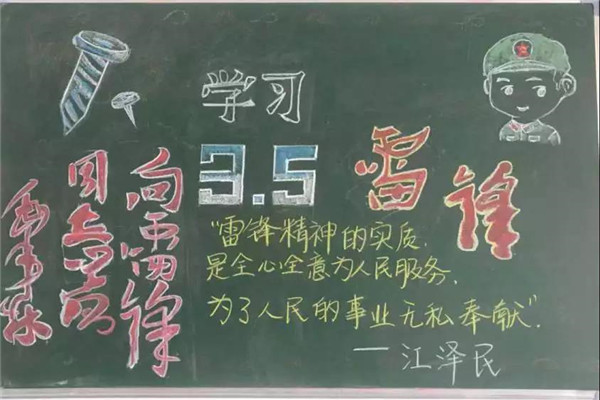 学习
3.5 雷锋
向雷锋
同志学习
毛泽东
"雷锋精神的实质,
是全心全意为人民服务,
为了人民的事业无私奉献".
—江泽民